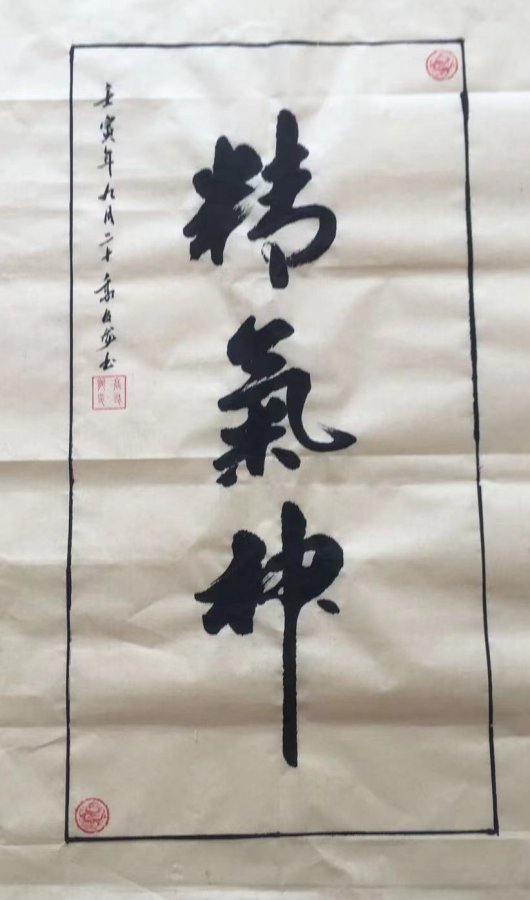 精氣神
壬寅年九月二十